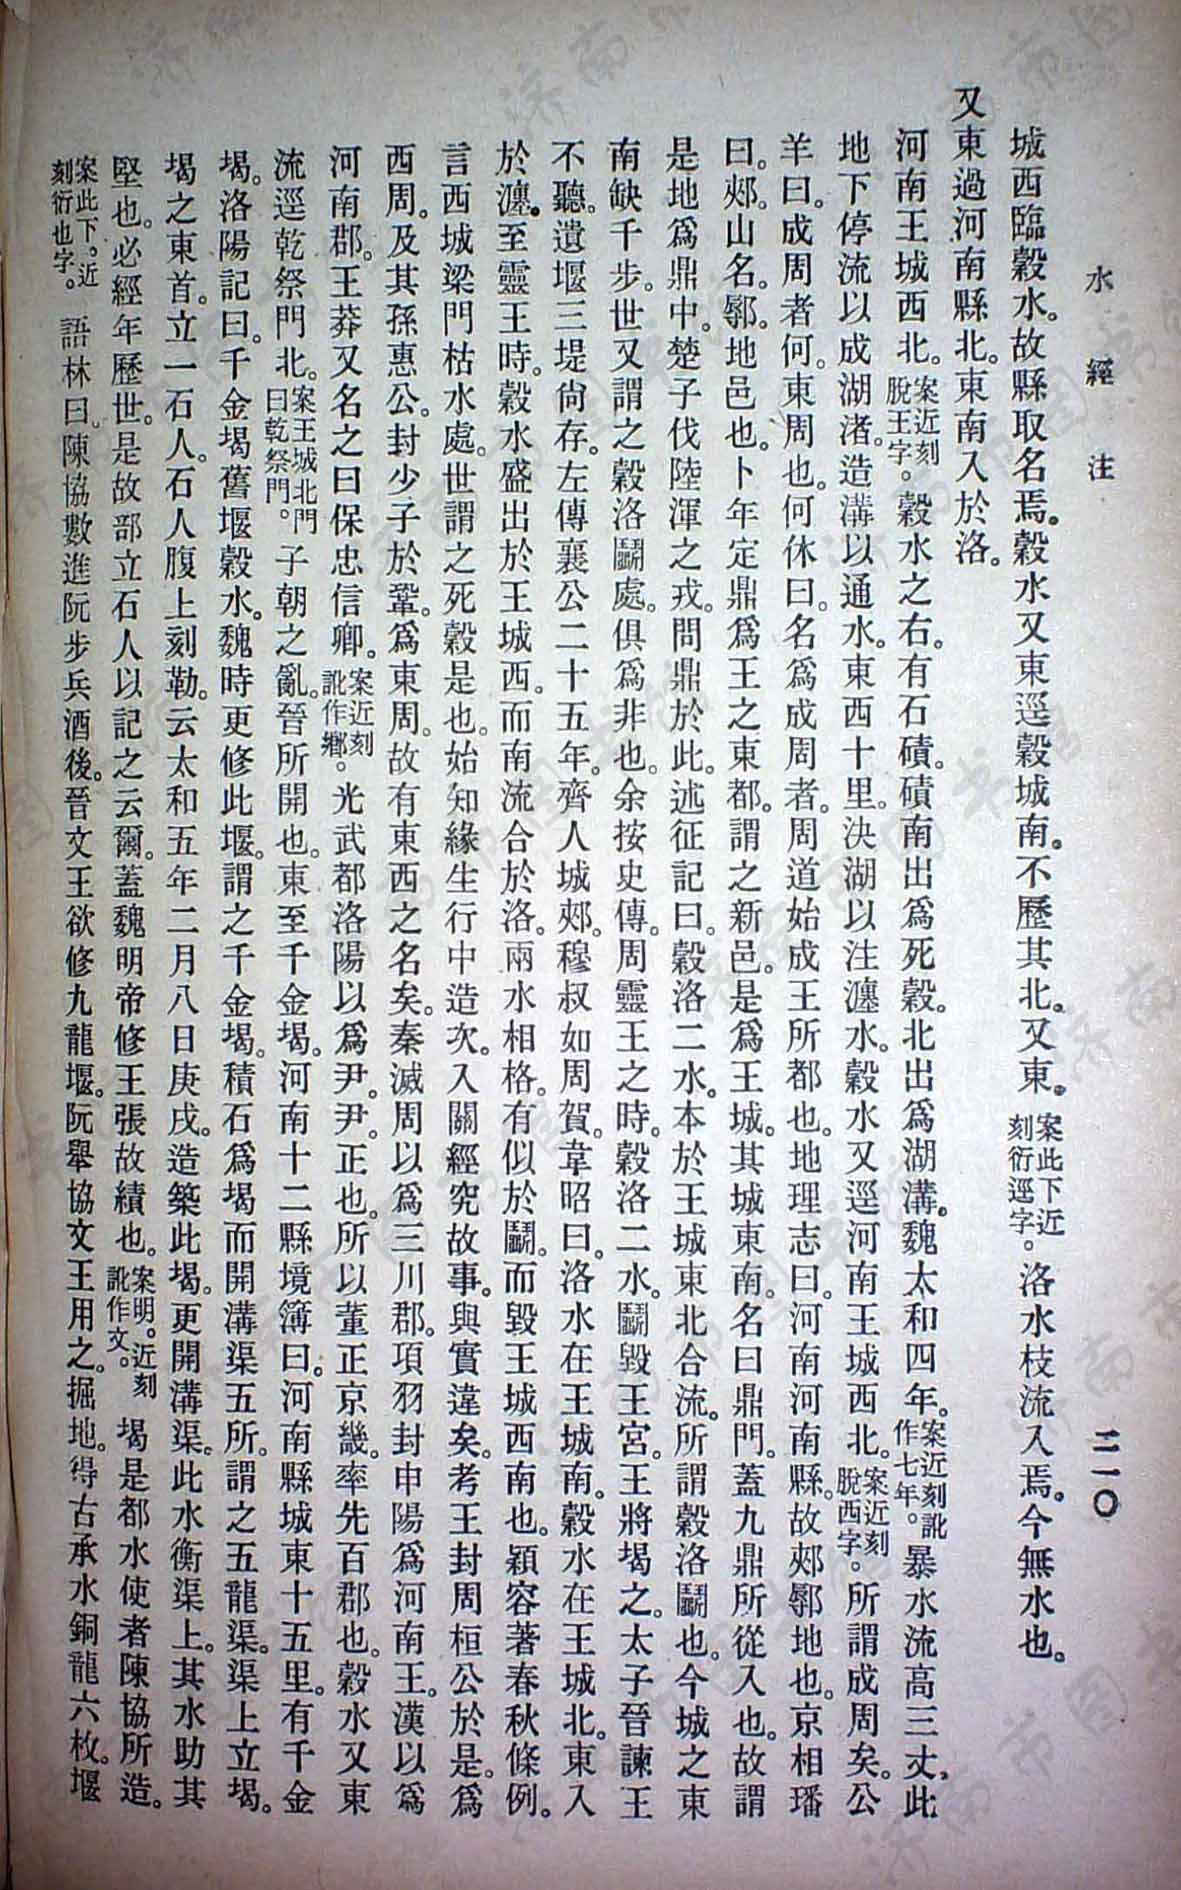 水經注
二一〇
城西臨穀水。故縣取名焉。穀水又東逕穀城南。不歷其北。又東。案此下近刻衍逕字。洛水枝流入焉。今無水也。
又東過河南縣北。東南入於洛。
河南王城西北。案近刻脫王字。穀水之右。有石磧。磧南出爲死穀。北出爲湖溝。魏太和四年。案近刻訛作七年。暴水流高三丈。此
地下停流以成湖渚。造溝以通水。東西十里。決湖以注瀍水。穀水又逕河南王城西北。案近刻脫西字。所謂成周矣。公
羊曰。成周者何。東周也。何休曰。名爲成周者。周道始成王所都也。地理志曰。河南河南縣。故郟鄏地也。京相璠
曰。郟。山名。鄏。地邑也。卜年定鼎爲王之東都。謂之新邑。是爲王城。其城東南。名曰鼎門。蓋九鼎所從入也。故謂
是地爲鼎中。楚子伐陸渾之戎。問鼎於此。述征記曰。穀洛二水。本於王城東北合流。所謂穀洛鬭也。今城之東
南缺千步。世又謂之穀洛鬭處。俱爲非也。余按史傳。周靈王之時。穀洛二水。鬭毀王宮。王將堨之。太子晉諫王
不聽。遺堰三堤尙存。左傳襄公二十五年。齊人城郟。穆叔如周賀。韋昭曰。洛水在王城南。穀水在王城北。東入
於瀍。至靈王時。穀水盛出於王城西。而南流合於洛。兩水相格。有似於鬭。而毀王城西南也。潁容著春秋條例。
言西城梁門枯水處。世謂之死穀是也。始知緣生行中造次。入關經究故事。與實違矣。考王封周桓公於是。爲
西周。及其孫惠公。封少子於鞏。爲東周。故有東西之名矣。秦滅周以爲三川郡。項羽封申陽爲河南王。漢以爲
河南郡。王莽又名之曰保忠信卿。案近刻訛作鄉。光武都洛陽以爲尹。尹。正也。所以董正京畿。率先百郡也。穀水又東
流逕乾祭門北。案王城北門曰乾祭門。子朝之亂。晉所開也。東至千金堨。河南十二縣境簿曰。河南縣城東十五里。有千金
堨。洛陽記曰。千金堨舊堰穀水。魏時更修此堰。謂之千金堨。積石爲堨而開溝渠五所。謂之五龍渠。渠上立堨。
堨之東首。立一石人。石人腹上刻勒。云太和五年二月八日庚戌。造築此堨。更開溝渠。此水衡渠上。其水助其
堅也。必經年歷世。是故部立石人以記之云爾。蓋魏明帝修王張故績也。案明。近刻訛作文。堨是都水使者陳協所造。
案此下。近刻衍也字。語林曰。陳協數進阮步兵酒後。晉文王欲修九龍堰。阮舉協文王用之。掘地。得古承水銅龍六枚。堰